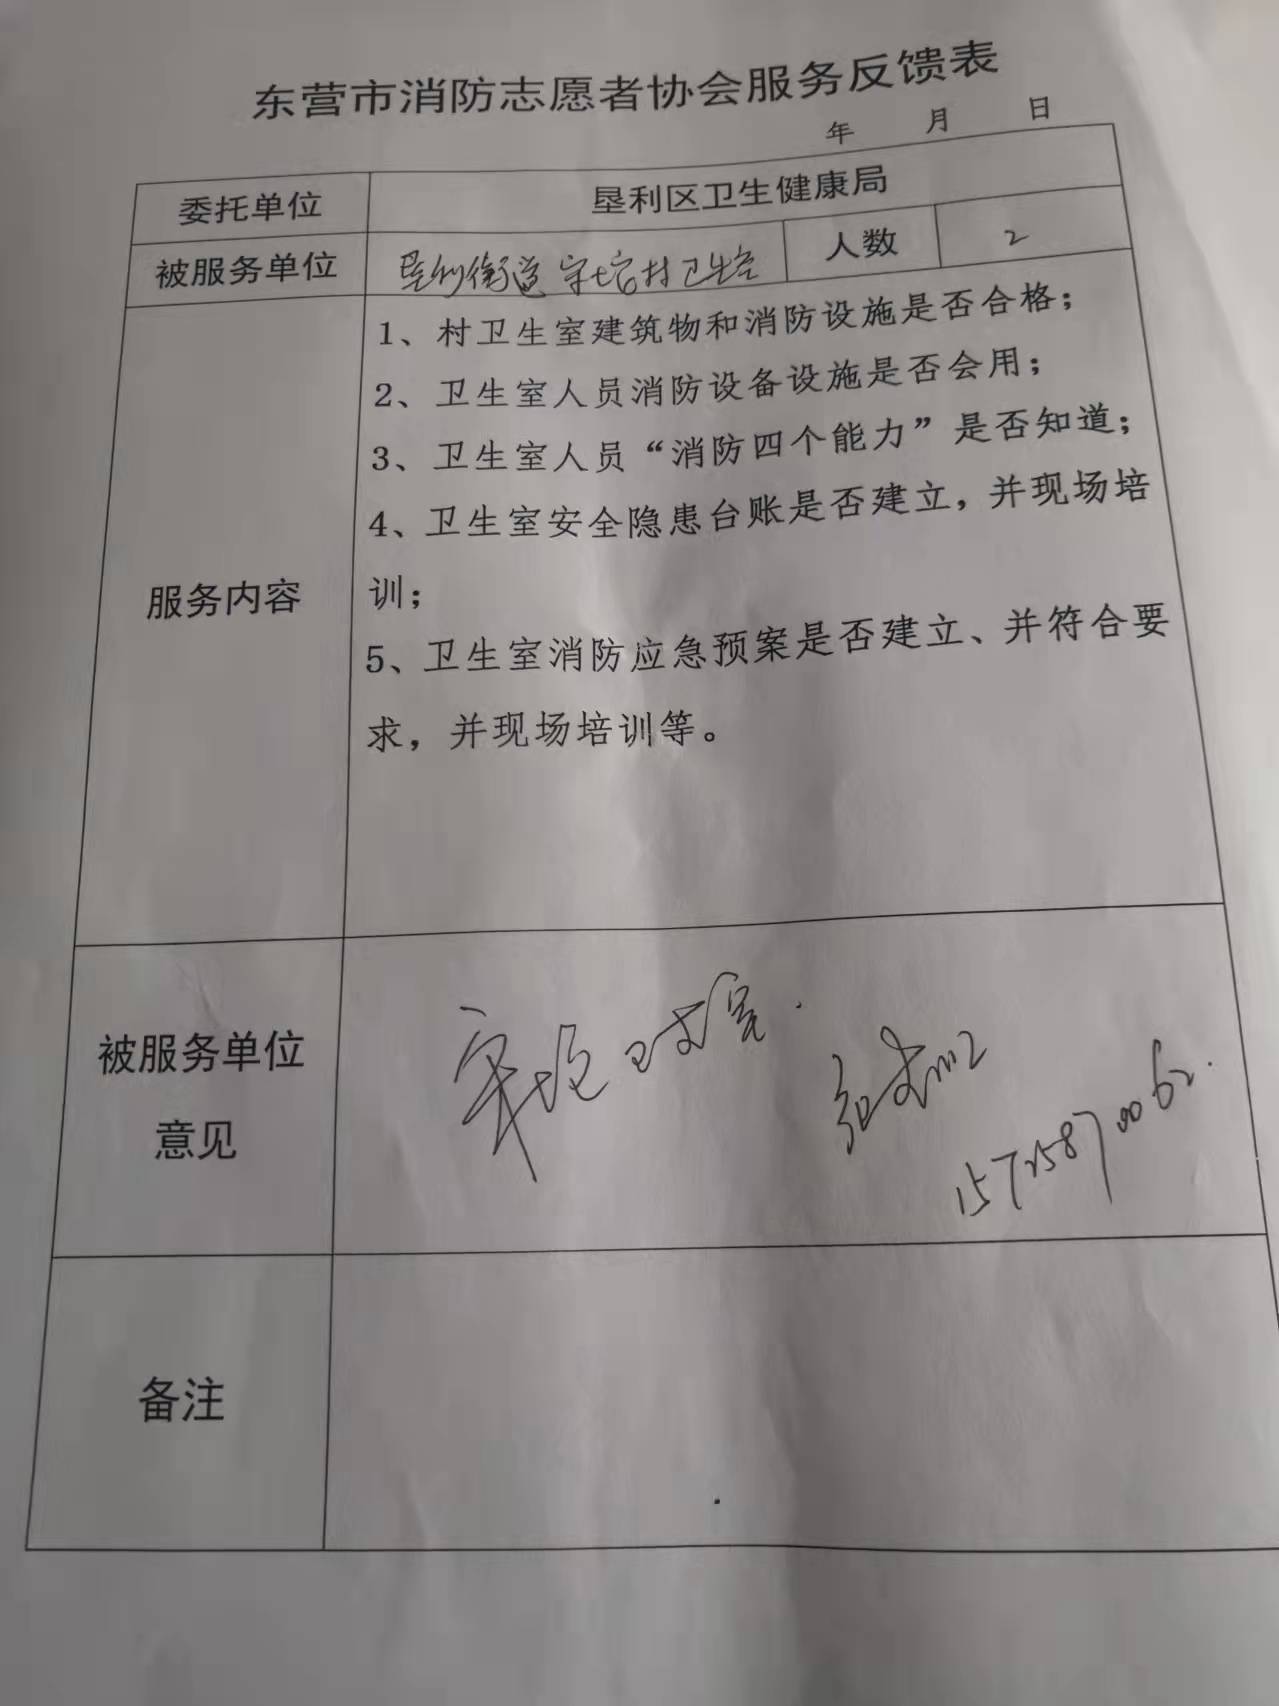 东营市消防志愿者协会服务反馈表
年 月 日
委托单位 垦利区卫生健康局
被服务单位 垦利街道宋坨村卫生室 人数 2
服务内容
1、村卫生室建筑物和消防设施是否合格；
2、卫生室人员消防设备设施是否会用；
3、卫生室人员“消防四个能力”是否知道；
4、卫生室安全隐患台账是否建立，并现场培
训；
5、卫生室消防应急预案是否建立、并符合要
求，并现场培训等。
被服务单位
意见
宋坨卫生室.
15725870062.
备注